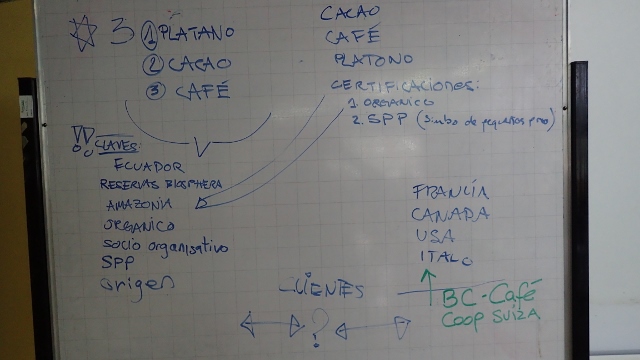 3 ① PLÁTANO
② CACAO
③ CAFÉ
CACAO
CAFÉ
PLATONO
CERTIFICACIONES:
1. ORGANICO
2. SPP (Simbo de pequeños pro)
!! CLAVES:
ECUADOR
RESERVAS BIOSPHERA
AMAZONIA
ORGANICO
SOCIO organisativo
SPP
origen
FRANCIA
CANADA
USA
ITALO
CLIENTES
?
BC-Café
COOP SUIZA